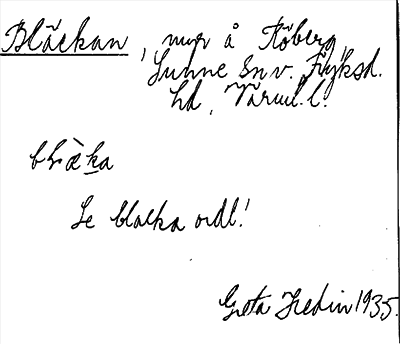 Bläckan, myr å Röberg,
Sunne sn v. Fryksd.
hd, Värml. l.
blæ̀ka
Se blacka ordl!
Greta Hedin 1935.